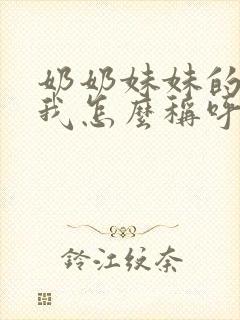 奶奶妹妹的
我怎麼稱呼
鈴江紋奈